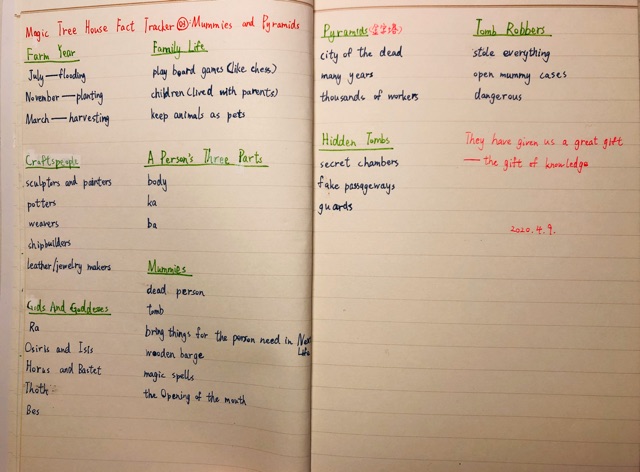 Magic Tree House Fact Tracker: Mummies and Pyramids
Farm Year
July — flooding
November — planting
March — harvesting
Craftspeople
sculptors and painters
potters
weavers
chipbuilders
leather/jewelry makers
Gods And Goddesses
Ra
Osiris and Isis
Horus and Bastet
Thoth
Bes
Family Life
play board games (like chess)
children (lived with parents)
keep animals as pets
A Person's Three Parts
body
ka
ba
Mummies
dead person
tomb
bring things for the person need in Next Life
wooden barge
magic spells
the Opening of the mouth
Pyramids
city of the dead
many years
thousands of workers
Hidden Tombs
secret chambers
fake passageways
guards
Tomb Robbers
stole everything
open mummy cases
dangerous
They have given us a great gift
— the gift of knowledge
2020.4.9.